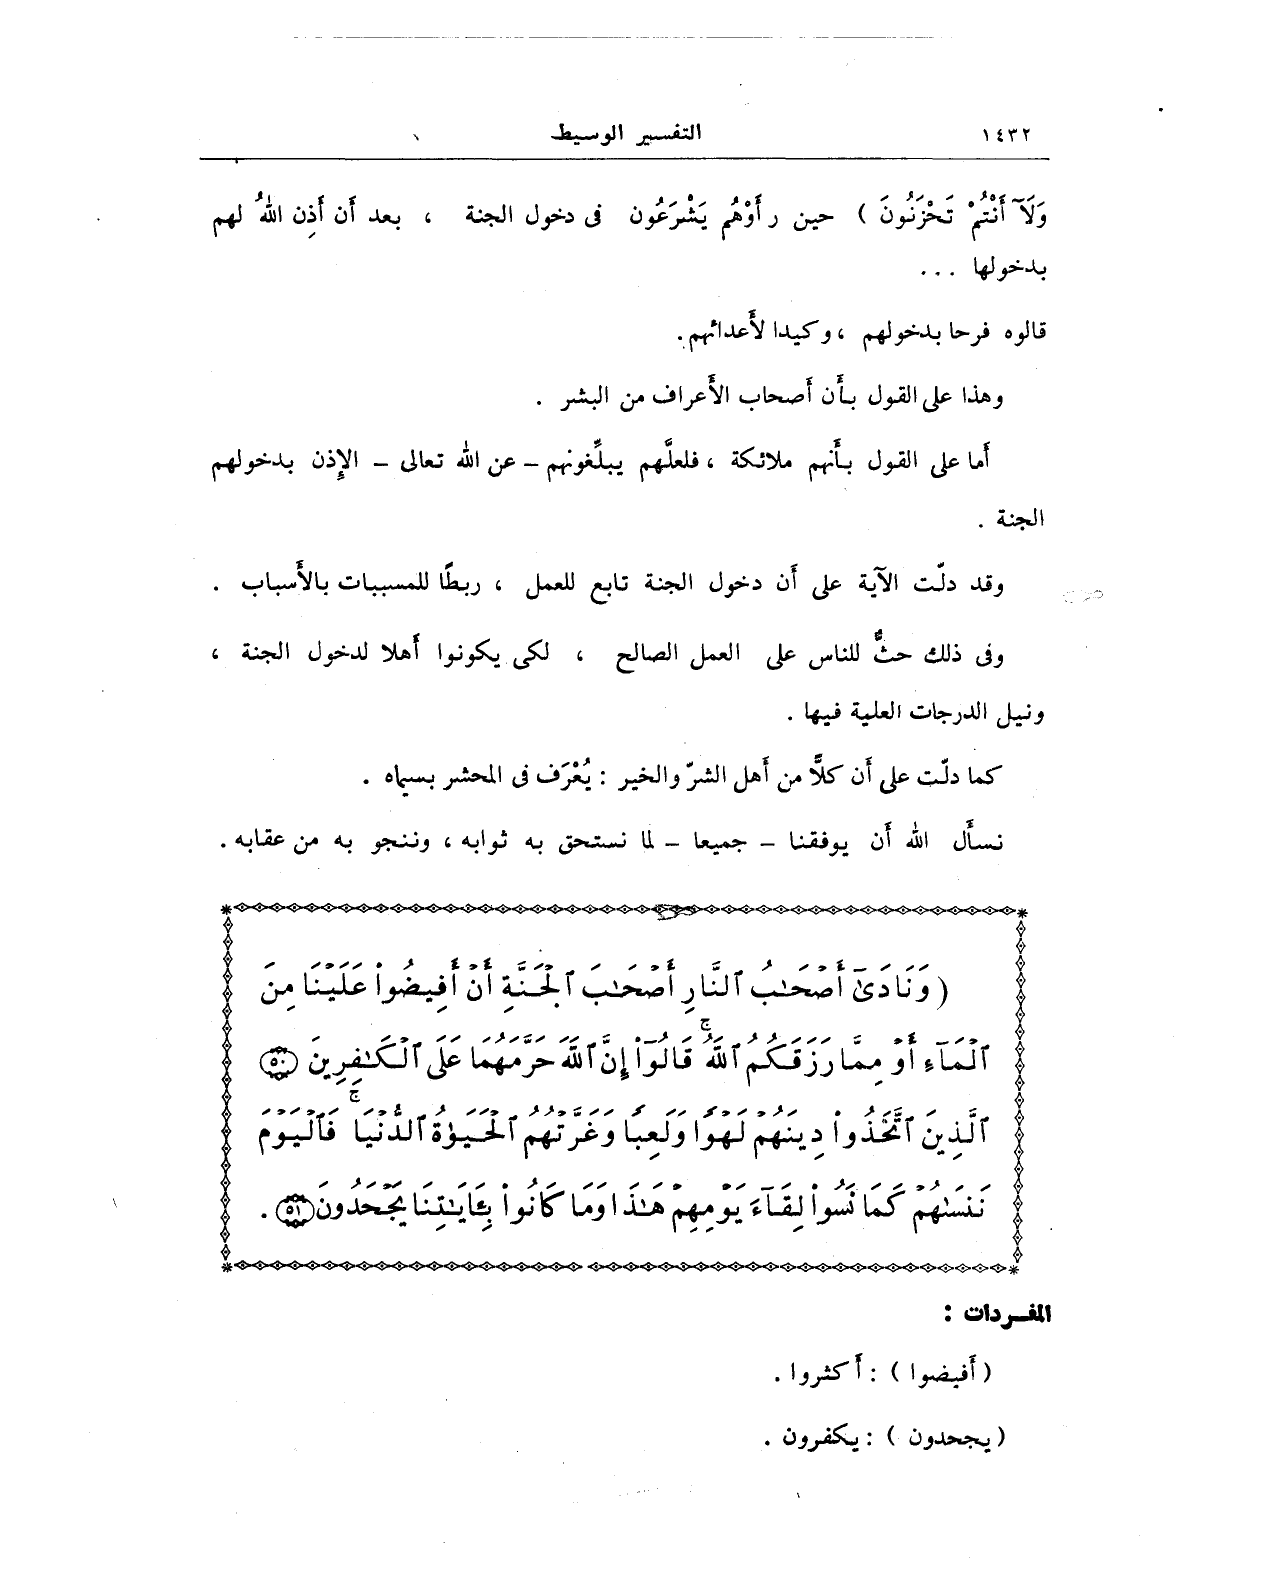 ١٤٣٢ التفسير الوسيط
وَلَآ أَنْتُمْ تَحْزَنُونَ ) حين رأَوْهُم يَشْرَعُون فى دخول الجنة ، بعد أَن أَذِن اللهُ لهم
بدخولها ...
قالوه فرحا بدخولهم ، وكيدا لأَعدائهم.
وهذا على القول بأَن أَصحاب الأَعراف من البشر .
أَما على القول بأَنهم ملائكة ، فلعلَّهم يبلِّغونهم – عن الله تعالى – الإِذن بدخولهم
الجنة .
وقد دلّت الآية على أَن دخول الجنة تابع للعمل ، ربطًا للمسببات بالأَسباب .
وفى ذلك حثٌّ للناس على العمل الصالح ، لكى يكونوا أَهلا لدخول الجنة ،
ونيل الدرجات العلية فيها .
كما دلّت على أَن كلاًّ من أَهل الشرّ والخير : يُعْرَف فى المحشر بسيماه .
نسأَل الله أَن يوفقنا – جميعا – لما نستحق به ثوابه ، وننجو به من عقابه .
( وَنَادَىٰٓ أَصْحَـٰبُ ٱلنَّارِ أَصْحَـٰبَ ٱلْجَنَّةِ أَنْ أَفِيضُوا۟ عَلَيْنَا مِنَ
ٱلْمَآءِ أَوْ مِمَّا رَزَقَكُمُ ٱللَّهُ ۚ قَالُوٓا۟ إِنَّ ٱللَّهَ حَرَّمَهُمَا عَلَى ٱلْكَـٰفِرِينَ ٥٠
ٱلَّذِينَ ٱتَّخَذُوا۟ دِينَهُمْ لَهْوًا وَلَعِبًا وَغَرَّتْهُمُ ٱلْحَيَوٰةُ ٱلدُّنْيَا ۚ فَٱلْيَوْمَ
نَنسَىٰهُمْ كَمَا نَسُوا۟ لِقَآءَ يَوْمِهِمْ هَـٰذَا وَمَا كَانُوا۟ بِـَٔايَـٰتِنَا يَجْحَدُونَ ٥١ .
المفـردات :
( أَفيضوا ) : أَكثروا .
( يجحدون ) : يكفرون .